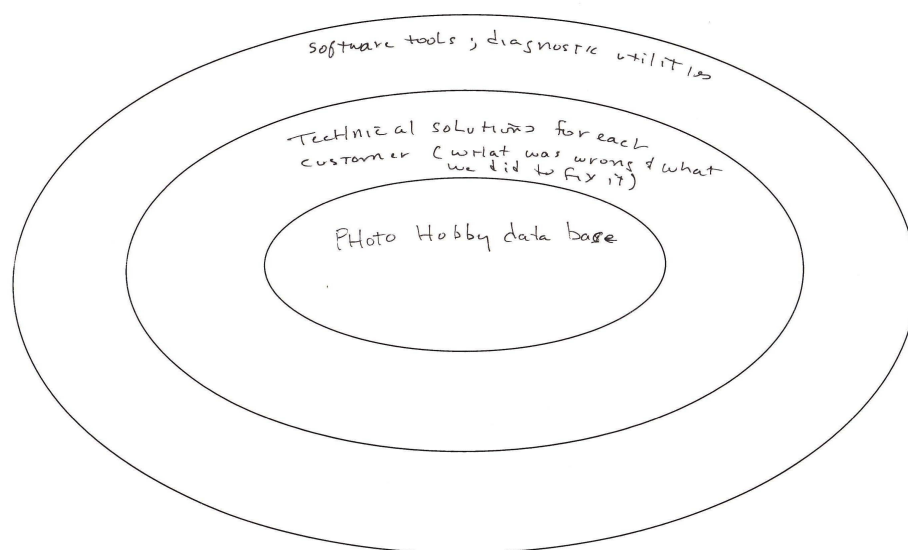 software tools ; diagnostic utilities
Technical solutions for each
customer (what was wrong & what
we did to fix it)
PHoto Hobby data base